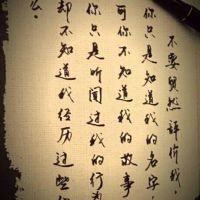 不要贸然评价我，
你只是知道我的名字
可你不知道我的故事
你只是听闻过我的行为
却不知道我经历过些
么。